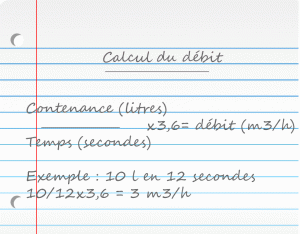 Calcul du débit
Contenance (litres)
x3,6= débit (m3/h)
Temps (secondes)
Exemple : 10 l en 12 secondes
10/12x3,6 = 3 m3/h